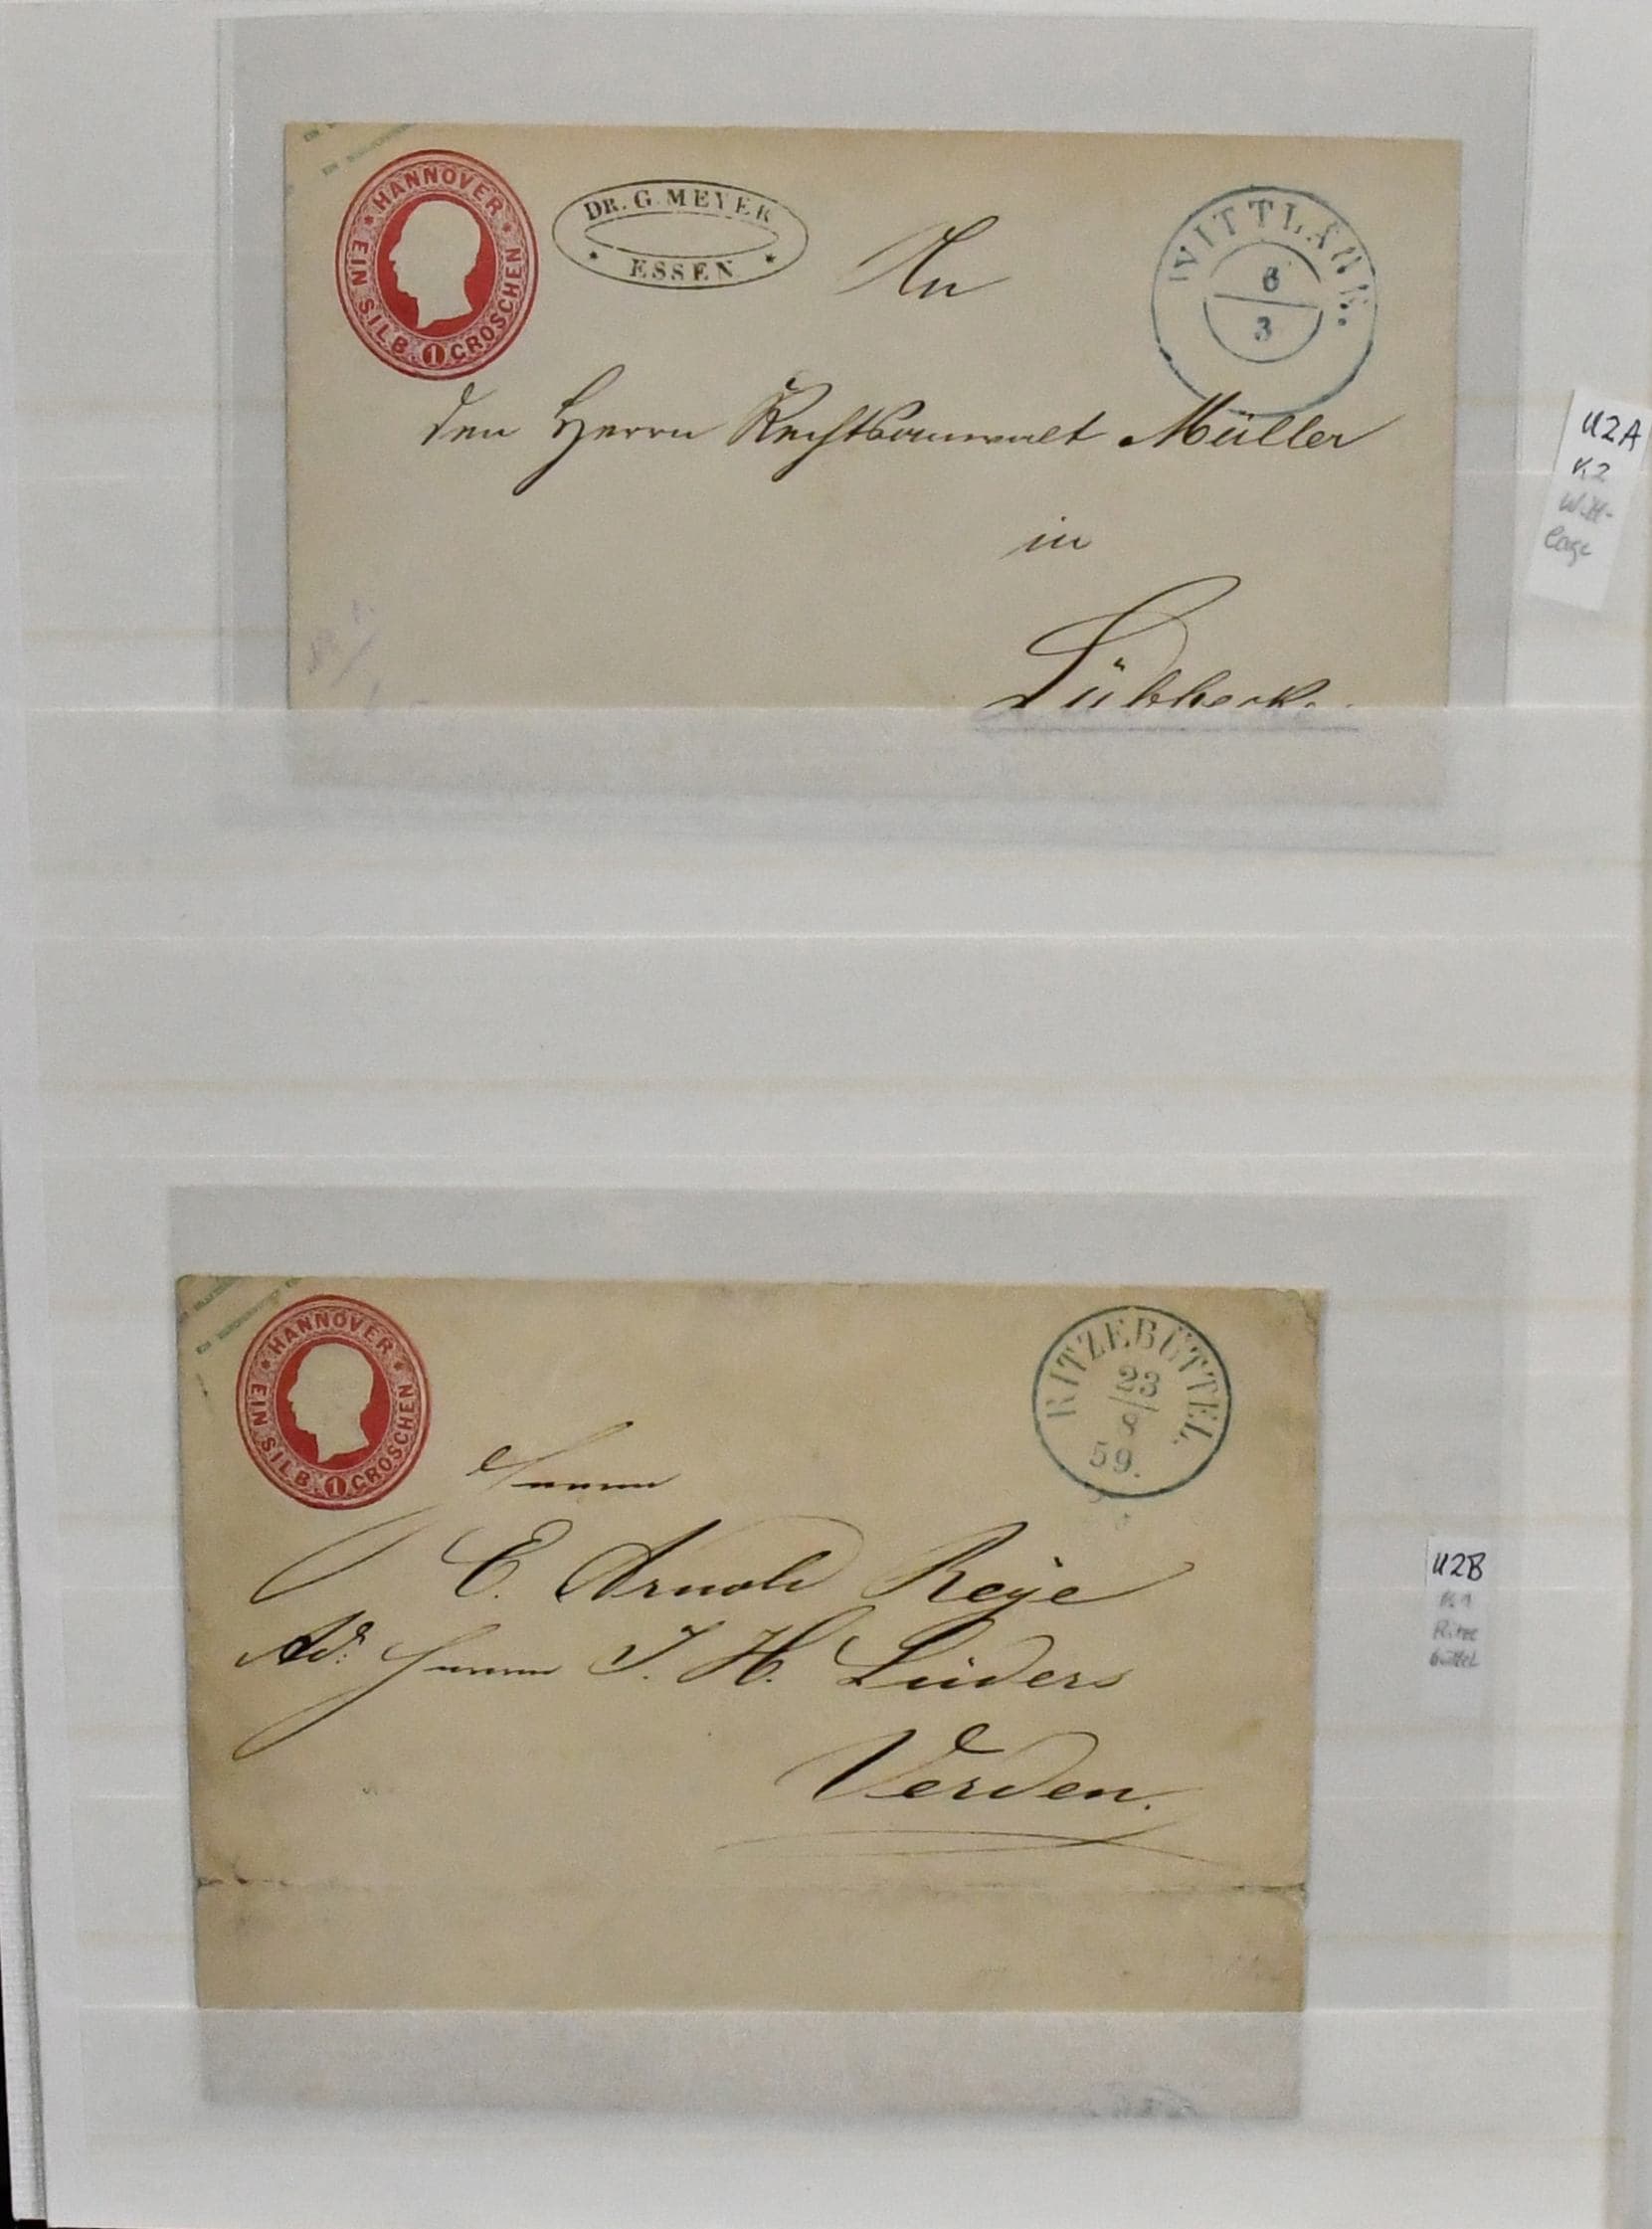 HANNOVER
EIN SILB. 1 GROSCHEN
DR. G. MEYER
ESSEN
An
WITTLAGE.
6
3
den Herrn Rechtsanwalt Müller
in
Lübbecke.
U2A
K2
Witt-
lage
HANNOVER
EIN SILB. 1 GROSCHEN
RITZEBÜTTEL
23
8
59.
Herrn
E. Arnold Reye
Ad: Herrn J. H. Lüders
Verden.
U2B
K1
Ritze
büttel